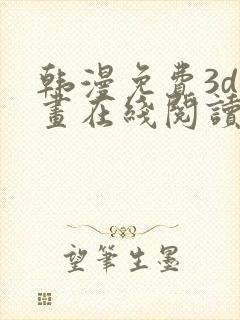 韩漫免费3d
畫在綫閱讀
望筆生墨